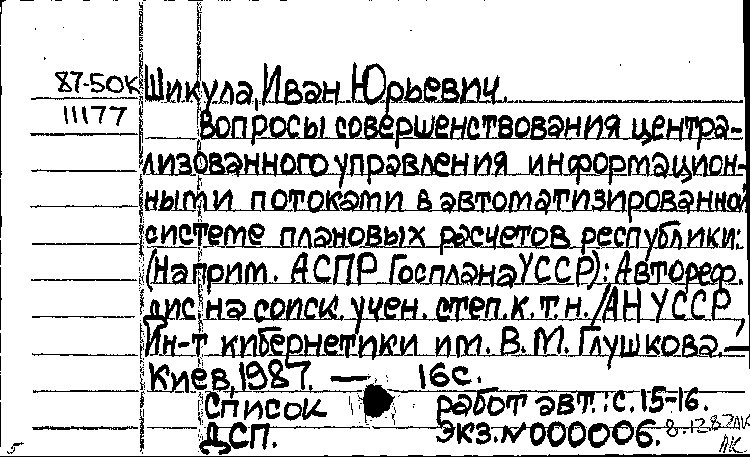 87-50К Шикула, Иван Юрьевич.
11177 Вопросы совершенствования центра-
лизованного управления информацион-
ными потоками в автоматизированной
системе плановых расчетов республики:
(На прим. АСПР Госплана УССР): Автореф.
дис на соиск. учен. степ. к. т. н. /АН УССР,
Ин-т кибернетики им. В. М. Глушкова. —
Киев, 1987. — 16с.
Список работ авт.: с. 15-16.
ДСП. Экз. N 000006.
5